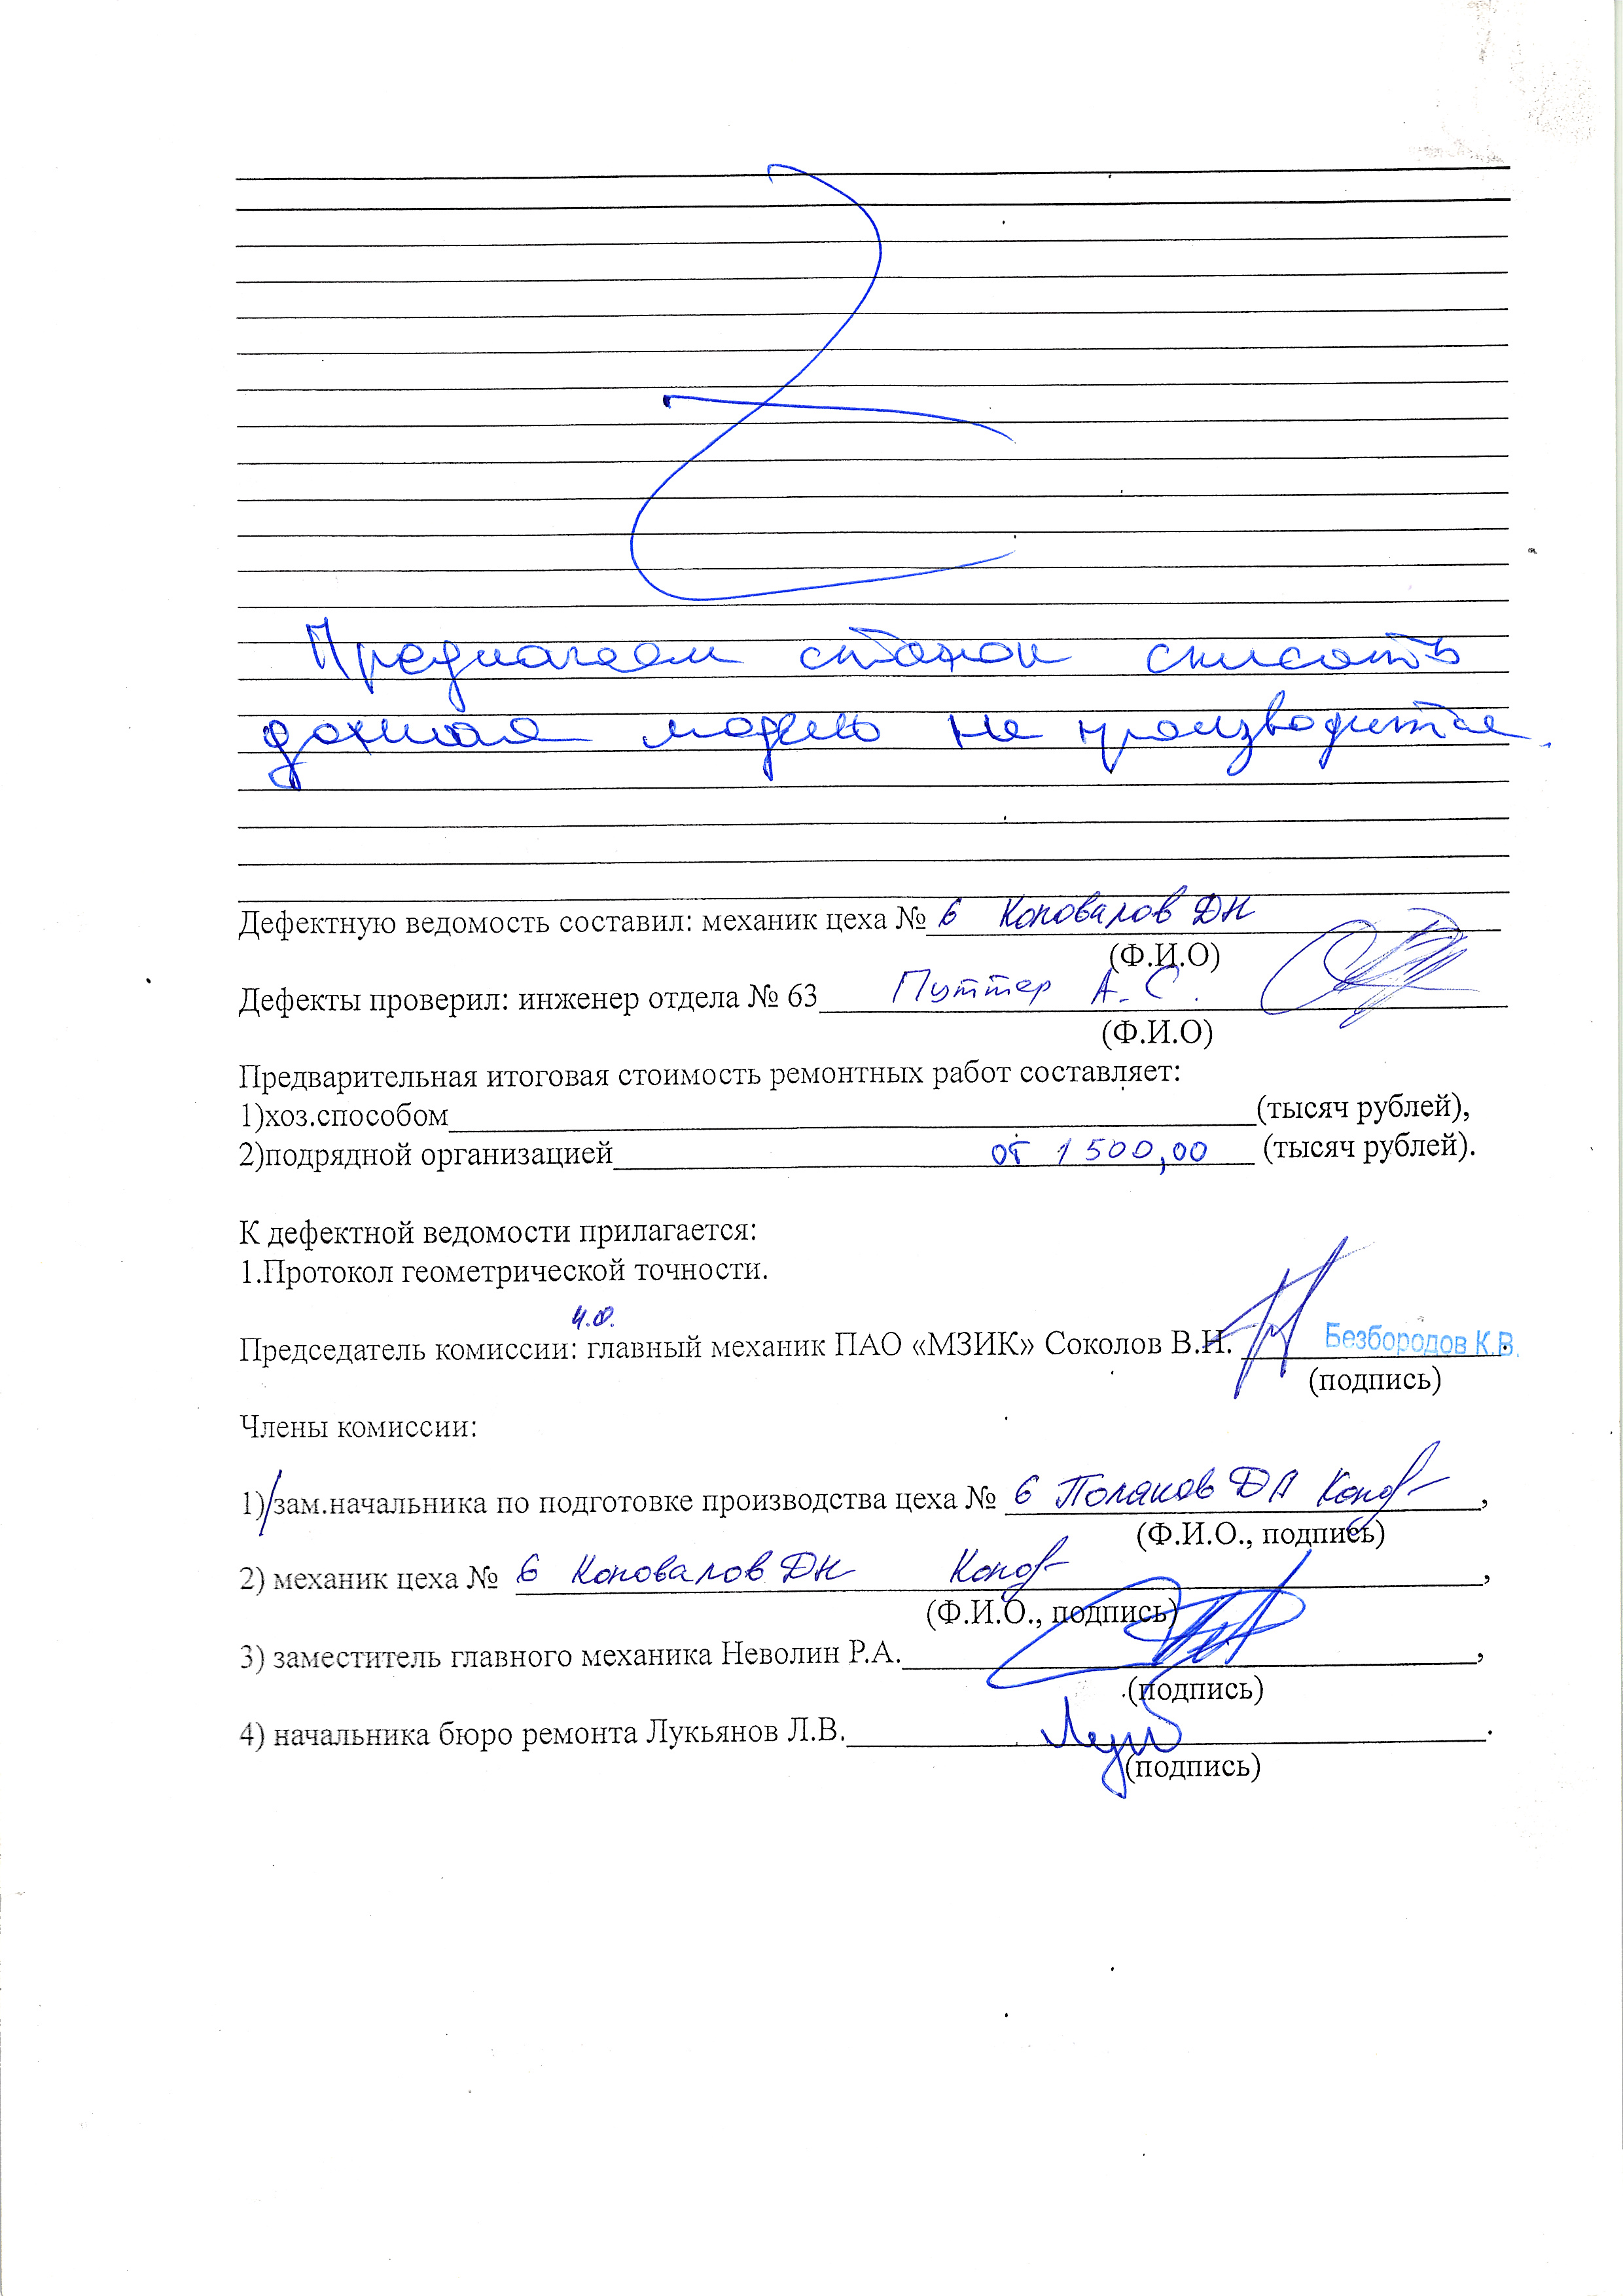 Предлагаем станок списать
данная модель не производится.
Дефектную ведомость составил: механик цеха № 6 Коновалов ДН
(Ф.И.О)
Дефекты проверил: инженер отдела № 63 Путтер А.С.
(Ф.И.О)
Предварительная итоговая стоимость ремонтных работ составляет:
1)хоз.способом (тысяч рублей),
2)подрядной организацией от 1 500,00 (тысяч рублей).
К дефектной ведомости прилагается:
1.Протокол геометрической точности.
и.о.
Председатель комиссии: главный механик ПАО «МЗИК» Соколов В.Н. Безбородов К.В.
(подпись)
Члены комиссии:
1) зам.начальника по подготовке производства цеха № 6 Поляков ДА ,
(Ф.И.О., подпись)
2) механик цеха № 6 Коновалов ДН ,
(Ф.И.О., подпись)
3) заместитель главного механика Неволин Р.А. ,
(подпись)
4) начальника бюро ремонта Лукьянов Л.В. .
(подпись)